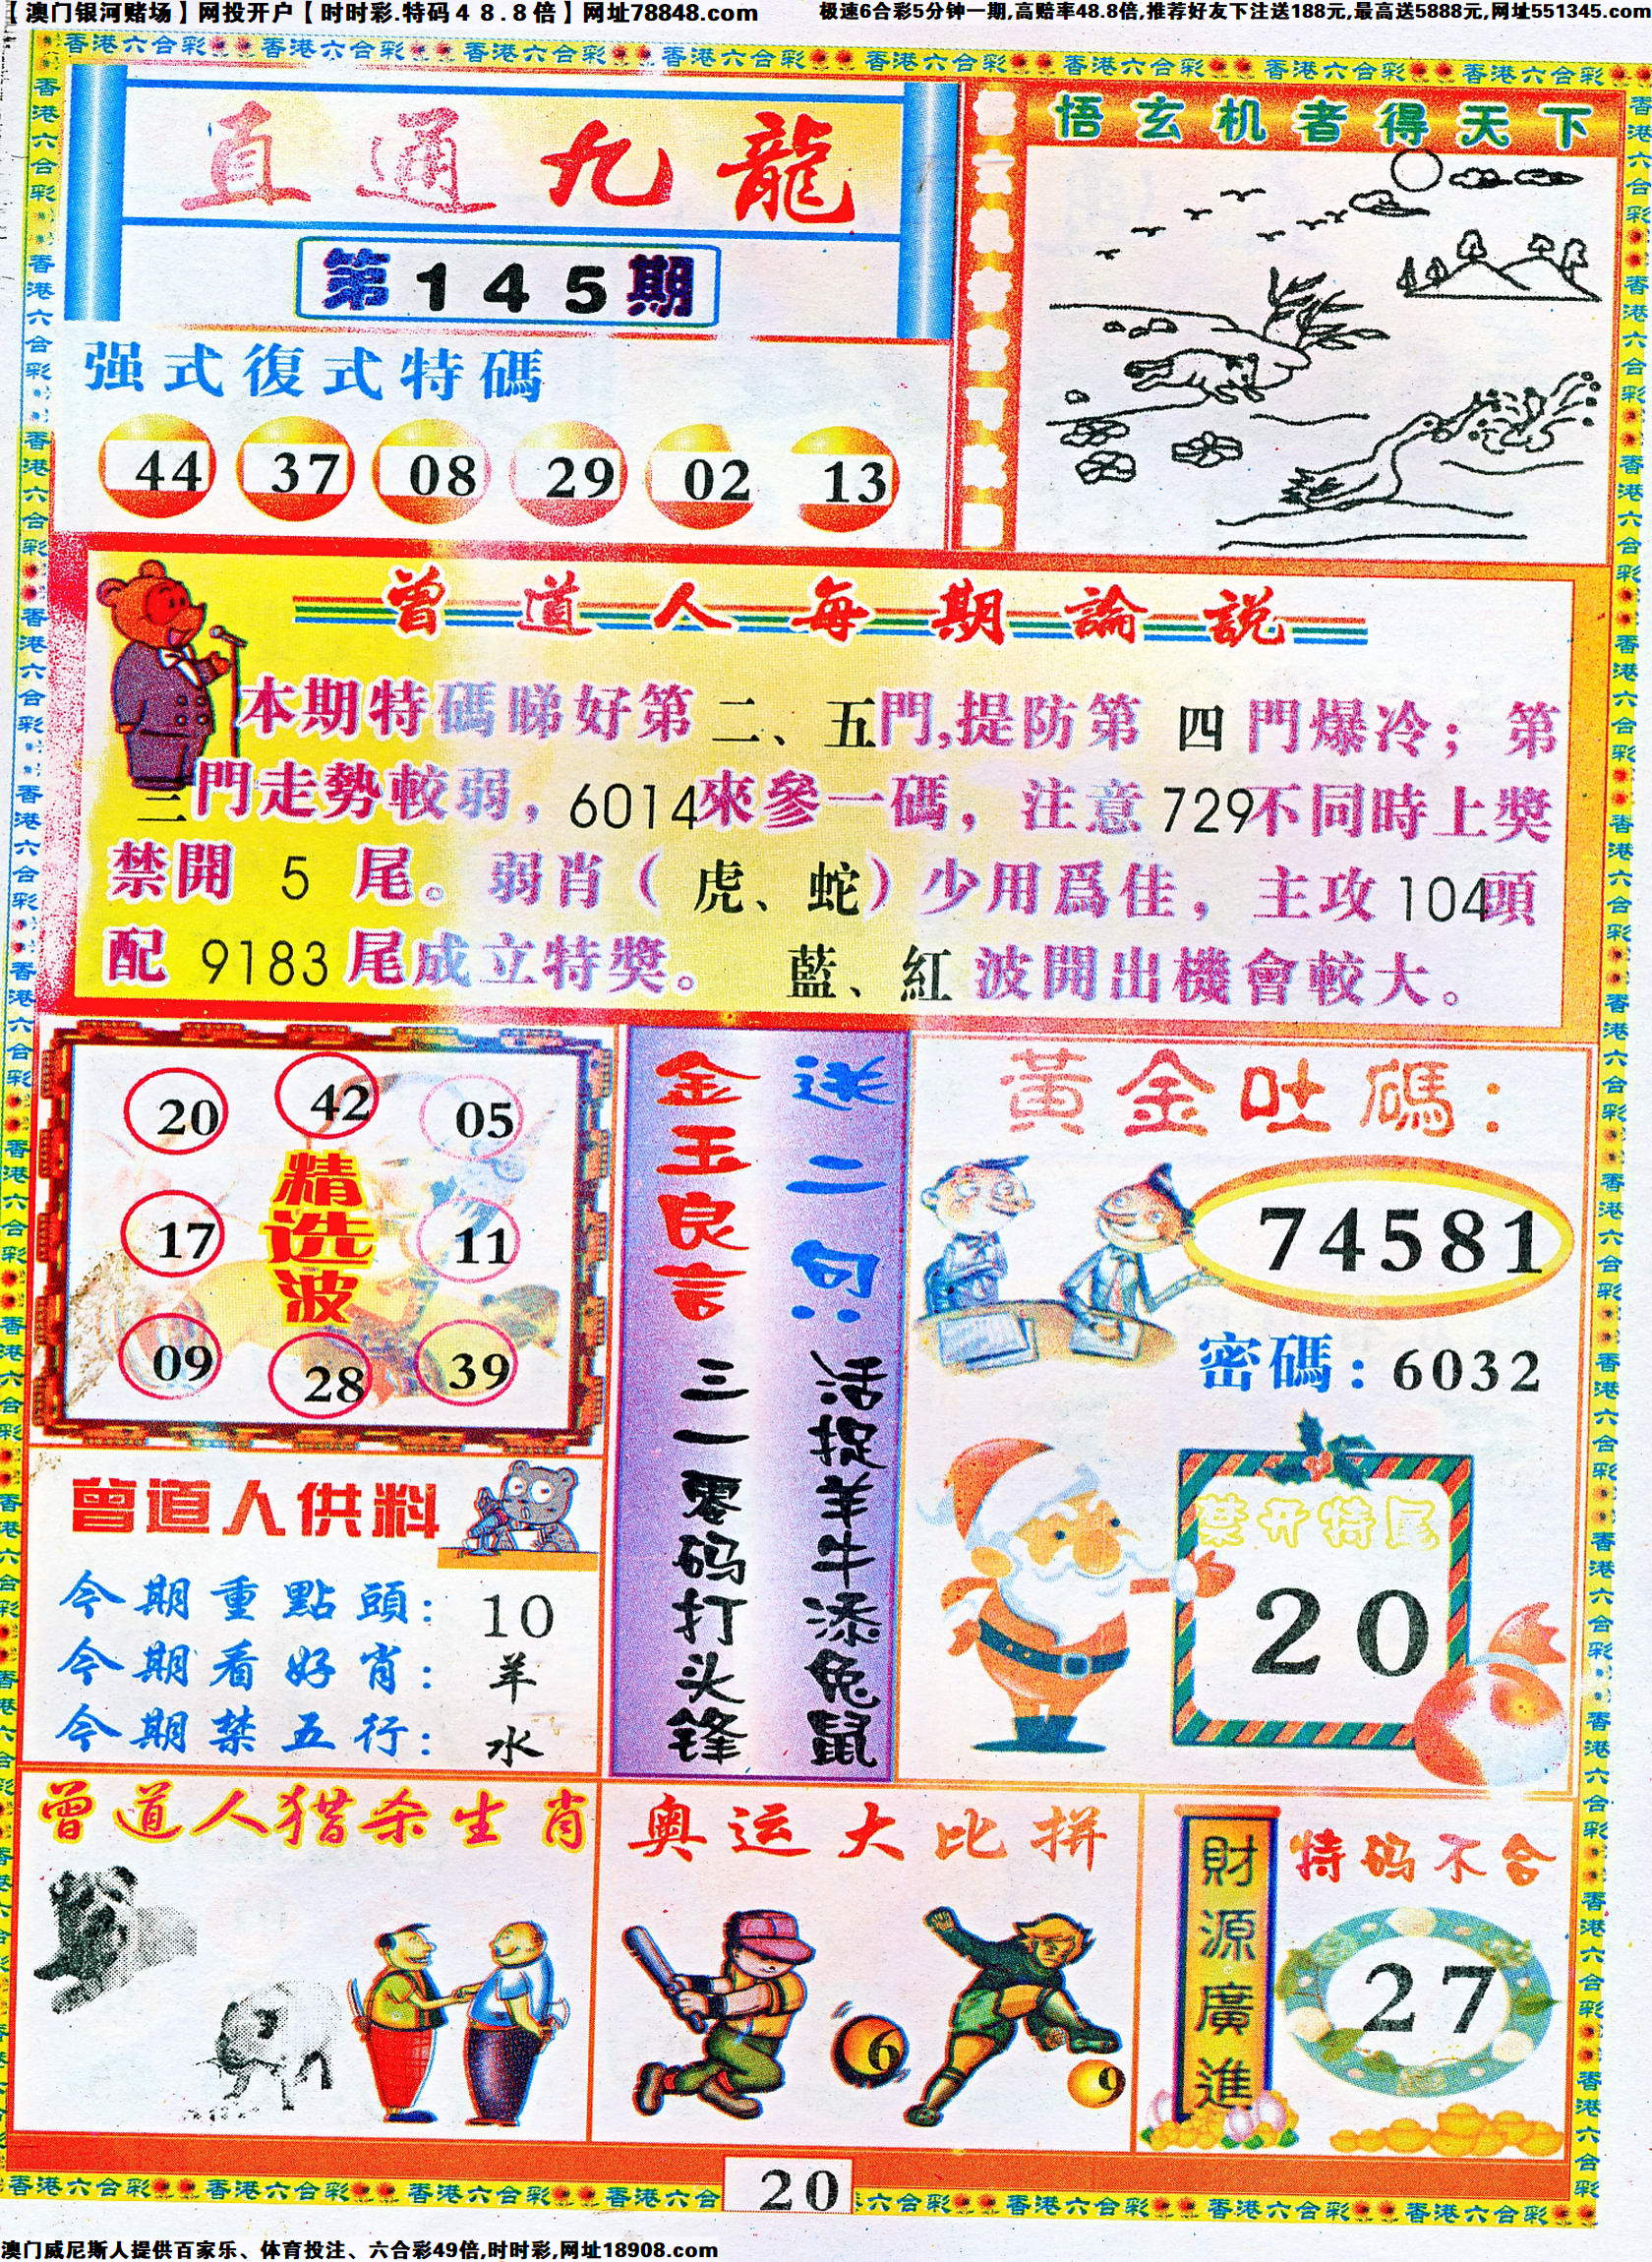 【澳门银河赌场】网投开户【时时彩.特码４８.８倍】网址78848.com
极速6合彩5分钟一期,高赔率48.8倍,推荐好友下注送188元,最高送5888元,网址551345.com
香港六合彩 香港六合彩 香港六合彩 香港六合彩 香港六合彩 香港六合彩 香港六合彩 香港六合彩
直通九龍
第145期
悟玄机者得天下
强式復式特碼
44 37 08 29 02 13
曾道人每期論説
本期特碼睇好第 二、五門,提防第 四 門爆冷；第
三門走勢較弱，6014來參一碼，注意729不同時上獎
禁開 5 尾。弱肖（虎、蛇）少用爲佳，主攻104頭
配 9183 尾成立特獎。 藍、紅 波開出機會較大。
20 42 05
精选波
17 11
09 28 39
送二句:
金玉良言
活捉羊牛添兔鼠
三一零码打头锋
黄金吐碼:
74581
密碼: 6032
禁开特尾
20
曾道人供料
今期重點頭: 10
今期看好肖: 羊
今期禁五行: 水
曾道人猎杀生肖
奥运大比拼
6
9
財源廣進
特码不合
27
20
香港六合彩 香港六合彩 香港六合彩 香港六合 六合彩 香港六合彩 香港六合彩 香港六合彩
澳门威尼斯人提供百家乐、体育投注、六合彩49倍,时时彩,网址18908.com